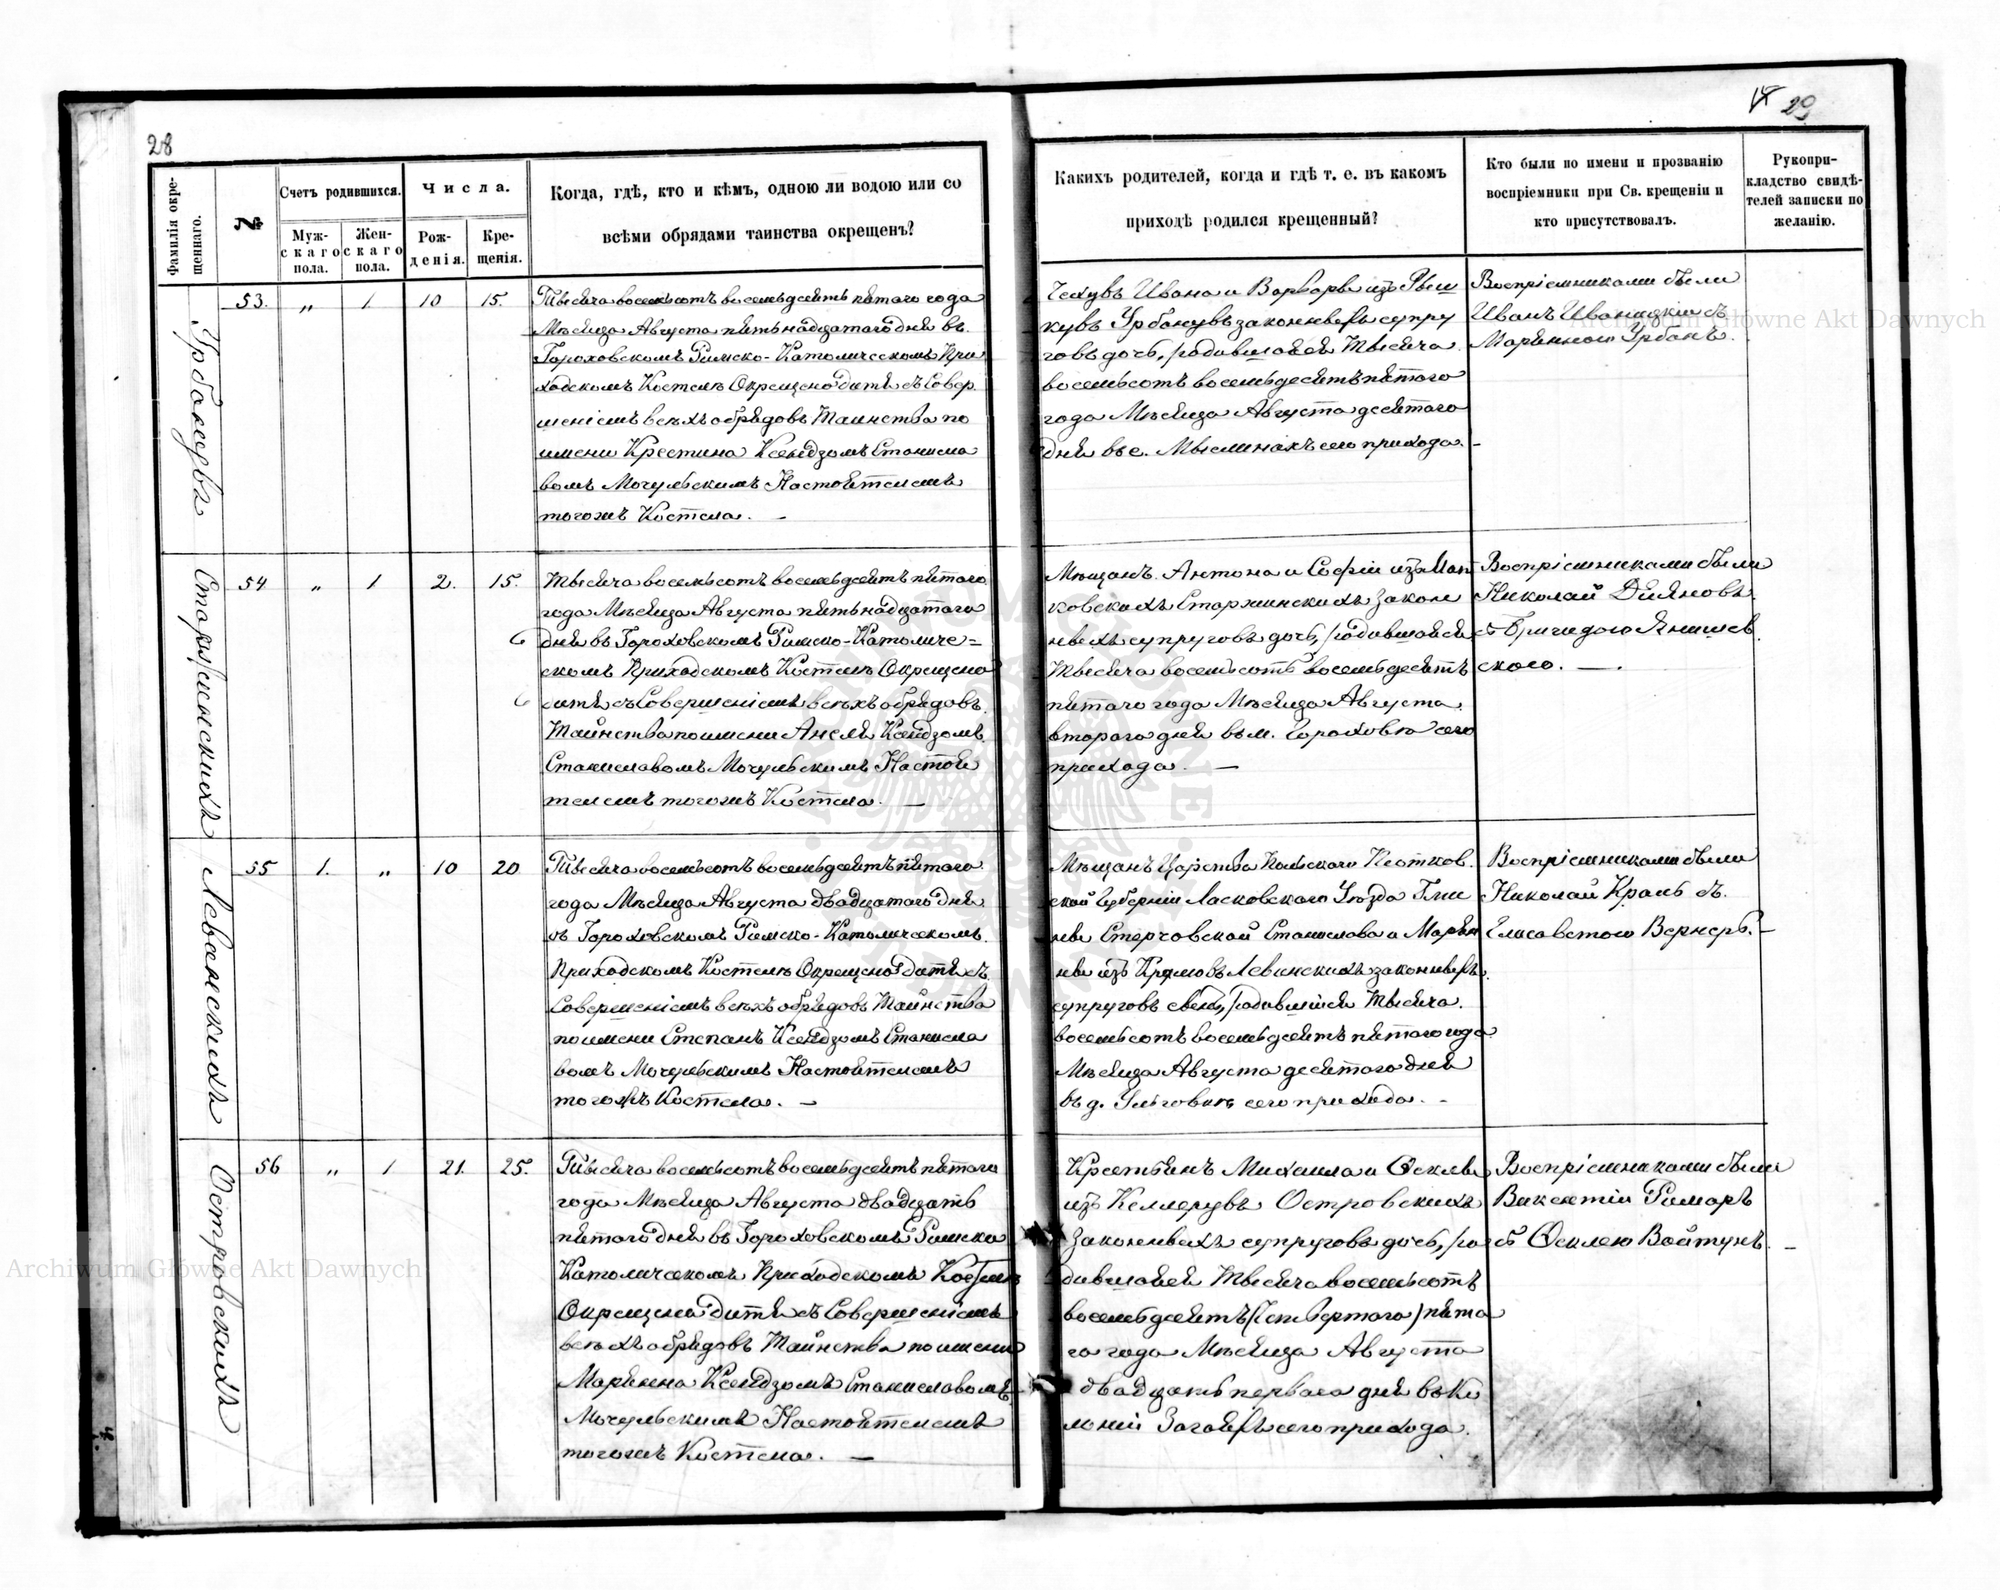 28
29
Фамилія окре-
щеннаго.
№
Счетъ родившихся.
Муж-
скаго
пола.
Жен-
скаго
пола.
Числа.
Рож-
денія.
Кре-
щенія.
Когда, гдѣ, кто и кѣмъ, одною ли водою или со
всѣми обрядами таинства окрещенъ?
Какихъ родителей, когда и гдѣ т. е. въ какомъ
приходѣ родился крещенный?
Кто были по имени и прозванію
воспріемники при Св. крещеніи и
кто присутствовалъ.
Рукопри-
кладство свидѣ-
телей записки по
желанію.
Урбанувъ
53. „ 1 10 15.
Тысяча восемьсотъ восемьдесятъ пятаго года
Мѣсяца Августа пятьнадцатаго дня въ
Гороховскомъ Римско-Католическомъ При
ходскомъ Костелѣ Окрещено дитя съ Совер
шеніемъ всѣхъ обрядовъ Таинства по
имени Крестина Ксендзомъ Станисла
вомъ Мочульскимъ Настоятелемъ
тогожъ Костела. —
Чехувъ Ивана и Варвары изъ
Урбанувъ законныхъ супру
говъ дочь, родившаяся Тысяча
восемьсотъ восемьдесятъ пятаго
года Мѣсяца Августа десятаго
дня въ с. Мыслинахъ сего прихода. -
Воспріемниками были
Иванъ Иваницкій съ
Маріанною Урбанъ.
54 „ 1 2. 15.
Тысяча восемьсотъ восемьдесятъ пятаго
года Мѣсяца Августа пятьнадцатаго
дня въ Гороховскомъ Римско-Католиче=
скомъ Приходскомъ Костелѣ Окрещено
дитя съ Совершеніемъ всѣхъ обрядовъ
Таинства по имени Анеля Ксендзомъ
Станиславомъ Мочульскимъ Настоя
телемъ тогожъ Костела. —
Мѣщанъ Антона и Софіи изъ
законн
ныхъ супруговъ дочь, родившаяся
Тысяча восемьсотъ восемьдесятъ
пятаго года Мѣсяца Августа
втораго дня въ м. Гороховѣ сего
прихода. —
Воспріемниками были
Николай
съ Бригидою Янишев
скою. —.
Левенскихъ
55 1. „ 10 20
Тысяча восемьсотъ восемьдесятъ пятаго
года Мѣсяца Августа двадцатаго дня
въ Гороховскомъ Римско-Католическомъ
Приходскомъ Костелѣ Окрещено дитя съ
Совершеніемъ всѣхъ обрядовъ Таинства
по имени Степанъ Ксендзомъ Станисла
вомъ Мочульскимъ Настоятелемъ
тогожъ Костела. —
Мѣщанъ Царства Польскаго Петков.
ской Губерніи Ласковскаго Уѣзда Гми
ны Станислава и Маріан
ны изъ Левинскихъ законныхъ
супруговъ сынъ, родившійся Тысяча
восемьсотъ восемьдесятъ пятаго года
Мѣсяца Августа десятаго дня
въ д. сего прихода. -
Воспріемниками были
Николай Краль съ
Елисаветою Вернеръ. —
Островскихъ
56 „ 1 21. 25.
Тысяча восемьсотъ восемьдесятъ пятаго
года Мѣсяца Августа двадцать
пятаго дня въ Гороховскомъ Римско
Католическомъ Приходскомъ Костелѣ
Окрещено дитя съ Совершеніемъ
всѣхъ обрядовъ Таинства по имени
Маріанна Ксендзомъ Станиславомъ
Мочульскимъ Настоятелемъ
тогожъ Костела. —
Крестьянъ Михаила и Феклы
изъ Келлерувъ Островскихъ
Законныхъ супруговъ дочь, ро
дившаяся Тысяча восемьсотъ
восемьдесятъ (Четвертого) пята
го года Мѣсяца Августа
двадцать перваго дня въ Ко
лоніи сего прихода.
Воспріемниками были
Викентій Римаръ
съ Феклею Войтунъ. —
Archiwum Główne Akt Dawnych
Archiwum Główne Akt Dawnych